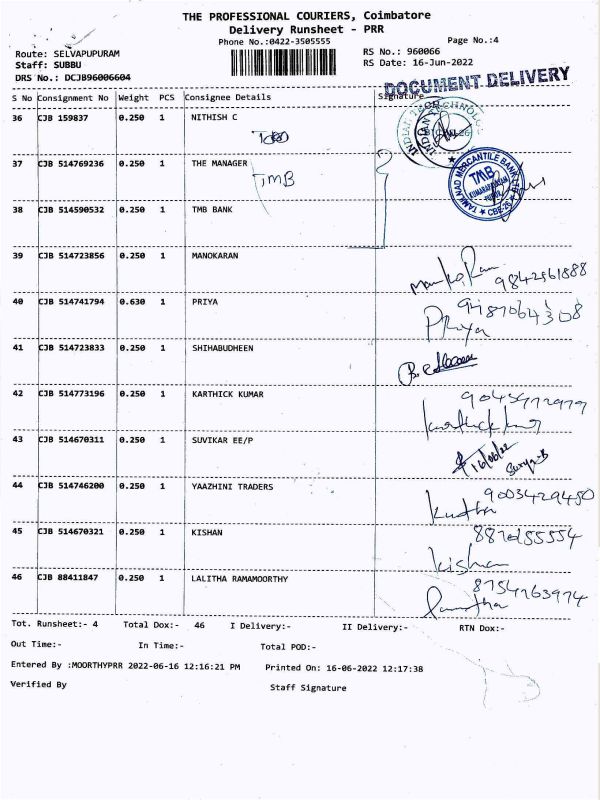 THE PROFESSIONAL COURIERS, Coimbatore
Delivery Runsheet - PRR
Phone No.:0422-3505555
Page No.:4
Route: SELVAPUPURAM
RS No.: 960066
Staff: SUBBU
RS Date: 16-Jun-2022
DRS No.: DCJB96006604
DOCUMENT DELIVERY
S No Consignment No Weight PCS Consignee Details Signature
36 CJB 159837 0.250 1 NITHISH C
37 CJB 514769236 0.250 1 THE MANAGER
TMB
TAMILNAD MERCANTILE BANK LTD
TMB
CBE-26
38 CJB 514590532 0.250 1 TMB BANK
39 CJB 514723856 0.250 1 MANOKARAN
9842561888
40 CJB 514741794 0.630 1 PRIYA
Priya
41 CJB 514723833 0.250 1 SHIHABUDHEEN
42 CJB 514773196 0.250 1 KARTHICK KUMAR
43 CJB 514670311 0.250 1 SUVIKAR EE/P
16/06/22
Surya-B
44 CJB 514746200 0.250 1 YAAZHINI TRADERS
9003429450
45 CJB 514670321 0.250 1 KISHAN
Kishan
46 CJB 88411847 0.250 1 LALITHA RAMAMOORTHY
8754763974
Tot. Runsheet:- 4 Total Dox:- 46 I Delivery:- II Delivery:- RTN Dox:-
Out Time:- In Time:- Total POD:-
Entered By :MOORTHYPRR 2022-06-16 12:16:21 PM Printed On: 16-06-2022 12:17:38
Verified By Staff Signature